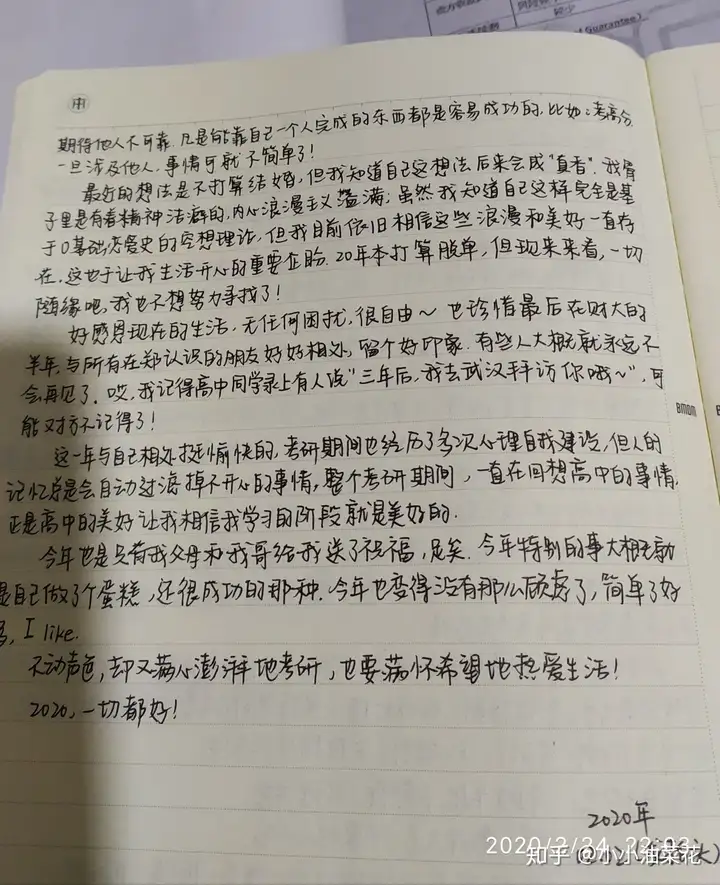 期待他人不可靠.凡是能靠自己一个人完成的东西都是容易成功的,比如:考高分.
一旦涉及他人,事情可就不简单了!
最近的想法是不打算结婚,但我知道自己这想法后来会成"真香".我骨
子里是有着精神洁癖的,内心浪漫主义蓬满;虽然我知道自己这样完全是基
于0基础恋爱史的空想理论,但我目前依旧相信这些浪漫和美好一直存
在,这也于让我生活开心的重要企盼.20年本打算脱单,但现来来看,一切
随缘吧,我也不想努力寻找了!
好感恩现在的生活,无任何困扰,很自由~也珍惜最后在财大的
半年,与所有在郑认识的朋友好好相处,留个好印象.有些人大概就永远不
会再见了.哎,我记得高中同学录上有人说"三年后,我去武汉拜访你哦~",可
能对方不记得了!
这一年与自己相处挺愉快的,考研期间也经历了多次心理自我建设,但人的
记忆总是会自动过滤掉不开心的事情,整个考研期间,一直在回想高中的事情,
正是高中的美好让我相信我学习的阶段就是美好的.
今年也是只有我父母和我哥给我送了祝福,足矣.今年特别的事大概就
是自己做了个蛋糕,还很成功的那种.今年也变得没有那么顾虑了,简单了好
多,I like.
不动声色,却又满心澎湃地考研,也要满怀希望地热爱生活!
2020,一切都好!
2020年
2020/2/24 22:03
知乎 @小小油菜花
BMDM